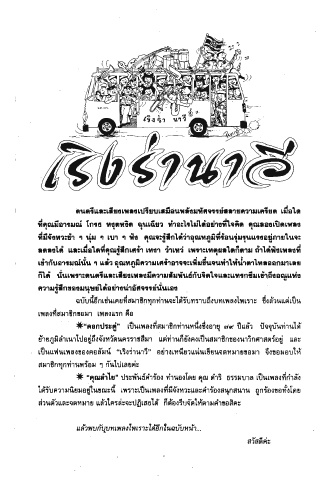 เริงร่า นาวี
เริงร่านาวี
ดนตรีและเสียงเพลงเปรียบเสมือนพลังมหัศจรรย์สลายความเครียด เมื่อใด
ที่คุณมีอารมณ์ โกรธ หงุดหงิด ฉุนเฉียว ทำอะไรไม่ได้อย่างที่ใจคิด คุณลองเปิดเพลง
ที่มีจังหวะช้า ๆ นุ่ม ๆ เบา ๆ ฟัง คุณจะรู้สึกได้ว่าอุณหภูมิที่ร้อนรุ่มรุนแรงอยู่ภายในจะ
ลดลงได้ และเมื่อใดที่คุณรู้สึกเศร้า เหงา ว้าเหว่ เพราะเหตุผลใดก็ตาม ถ้าได้ฟังเพลงที่
เข้ากับอารมณ์นั้น ๆ แล้ว อุณหภูมิความเศร้าอาจจะเพิ่มขึ้นจนทำให้น้ำตาไหลออกมาเลย
ก็ได้ นั่นเพราะดนตรีและเสียงเพลงมีความสัมพันธ์กับจิตใจและแทรกซึมเข้าถึงอณูแห่ง
ความรู้สึกของมนุษย์ได้อย่างน่าอัศจรรย์นั่นเอง
ฉบับนี้อีกเช่นเคยที่สมาชิกทุกท่านจะได้รับทราบถึงบทเพลงไพเราะ ซึ่งล้วนแต่เป็น
เพลงที่สมาชิกขอมา เพลงแรก คือ
*"ดอกประดู่" เป็นเพลงที่สมาชิกท่านหนึ่งซึ่งอายุ ๗๙ ปีแล้ว ปัจจุบันท่านได้
ย้ายภูมิลำเนาไปอยู่ถึงจังหวัดนครราชสีมา แต่ท่านก็ยังคงเป็นสมาชิกของนาวิกศาสตร์อยู่ และ
เป็นแฟนเพลงของคอลัมน์ "เริงร่านาวี" อย่างเหนียวแน่นเขียนจดหมายขอมา จึงขอมอบให้
สมาชิกทุกท่านพร้อม ๆ กันไปเลยค่ะ
*"คุณลำไย" ประพันธ์คำร้อง ทำนองโดย คุณ ดำริ ธรรมบาล เป็นเพลงที่กำลัง
ได้รับความนิยมอยู่ในขณะนี้ เพราะเป็นเพลงที่มีจังหวะและคำร้องสนุกสนาน ถูกร้องขอทั้งโดย
ส่วนตัวและจดหมาย แล้วใครล่ะจะปฏิเสธได้ ก็ต้องรีบจัดให้ตามคำขอสิคะ
แล้วพบกับบทเพลงไพเราะได้อีกในฉบับหน้า...
สวัสดีค่ะ